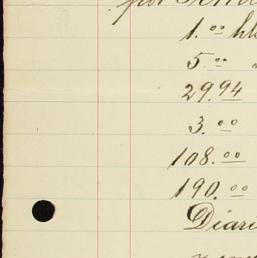 por
1.00
5.00
29.94
3.00
108.00
190.00
Diari